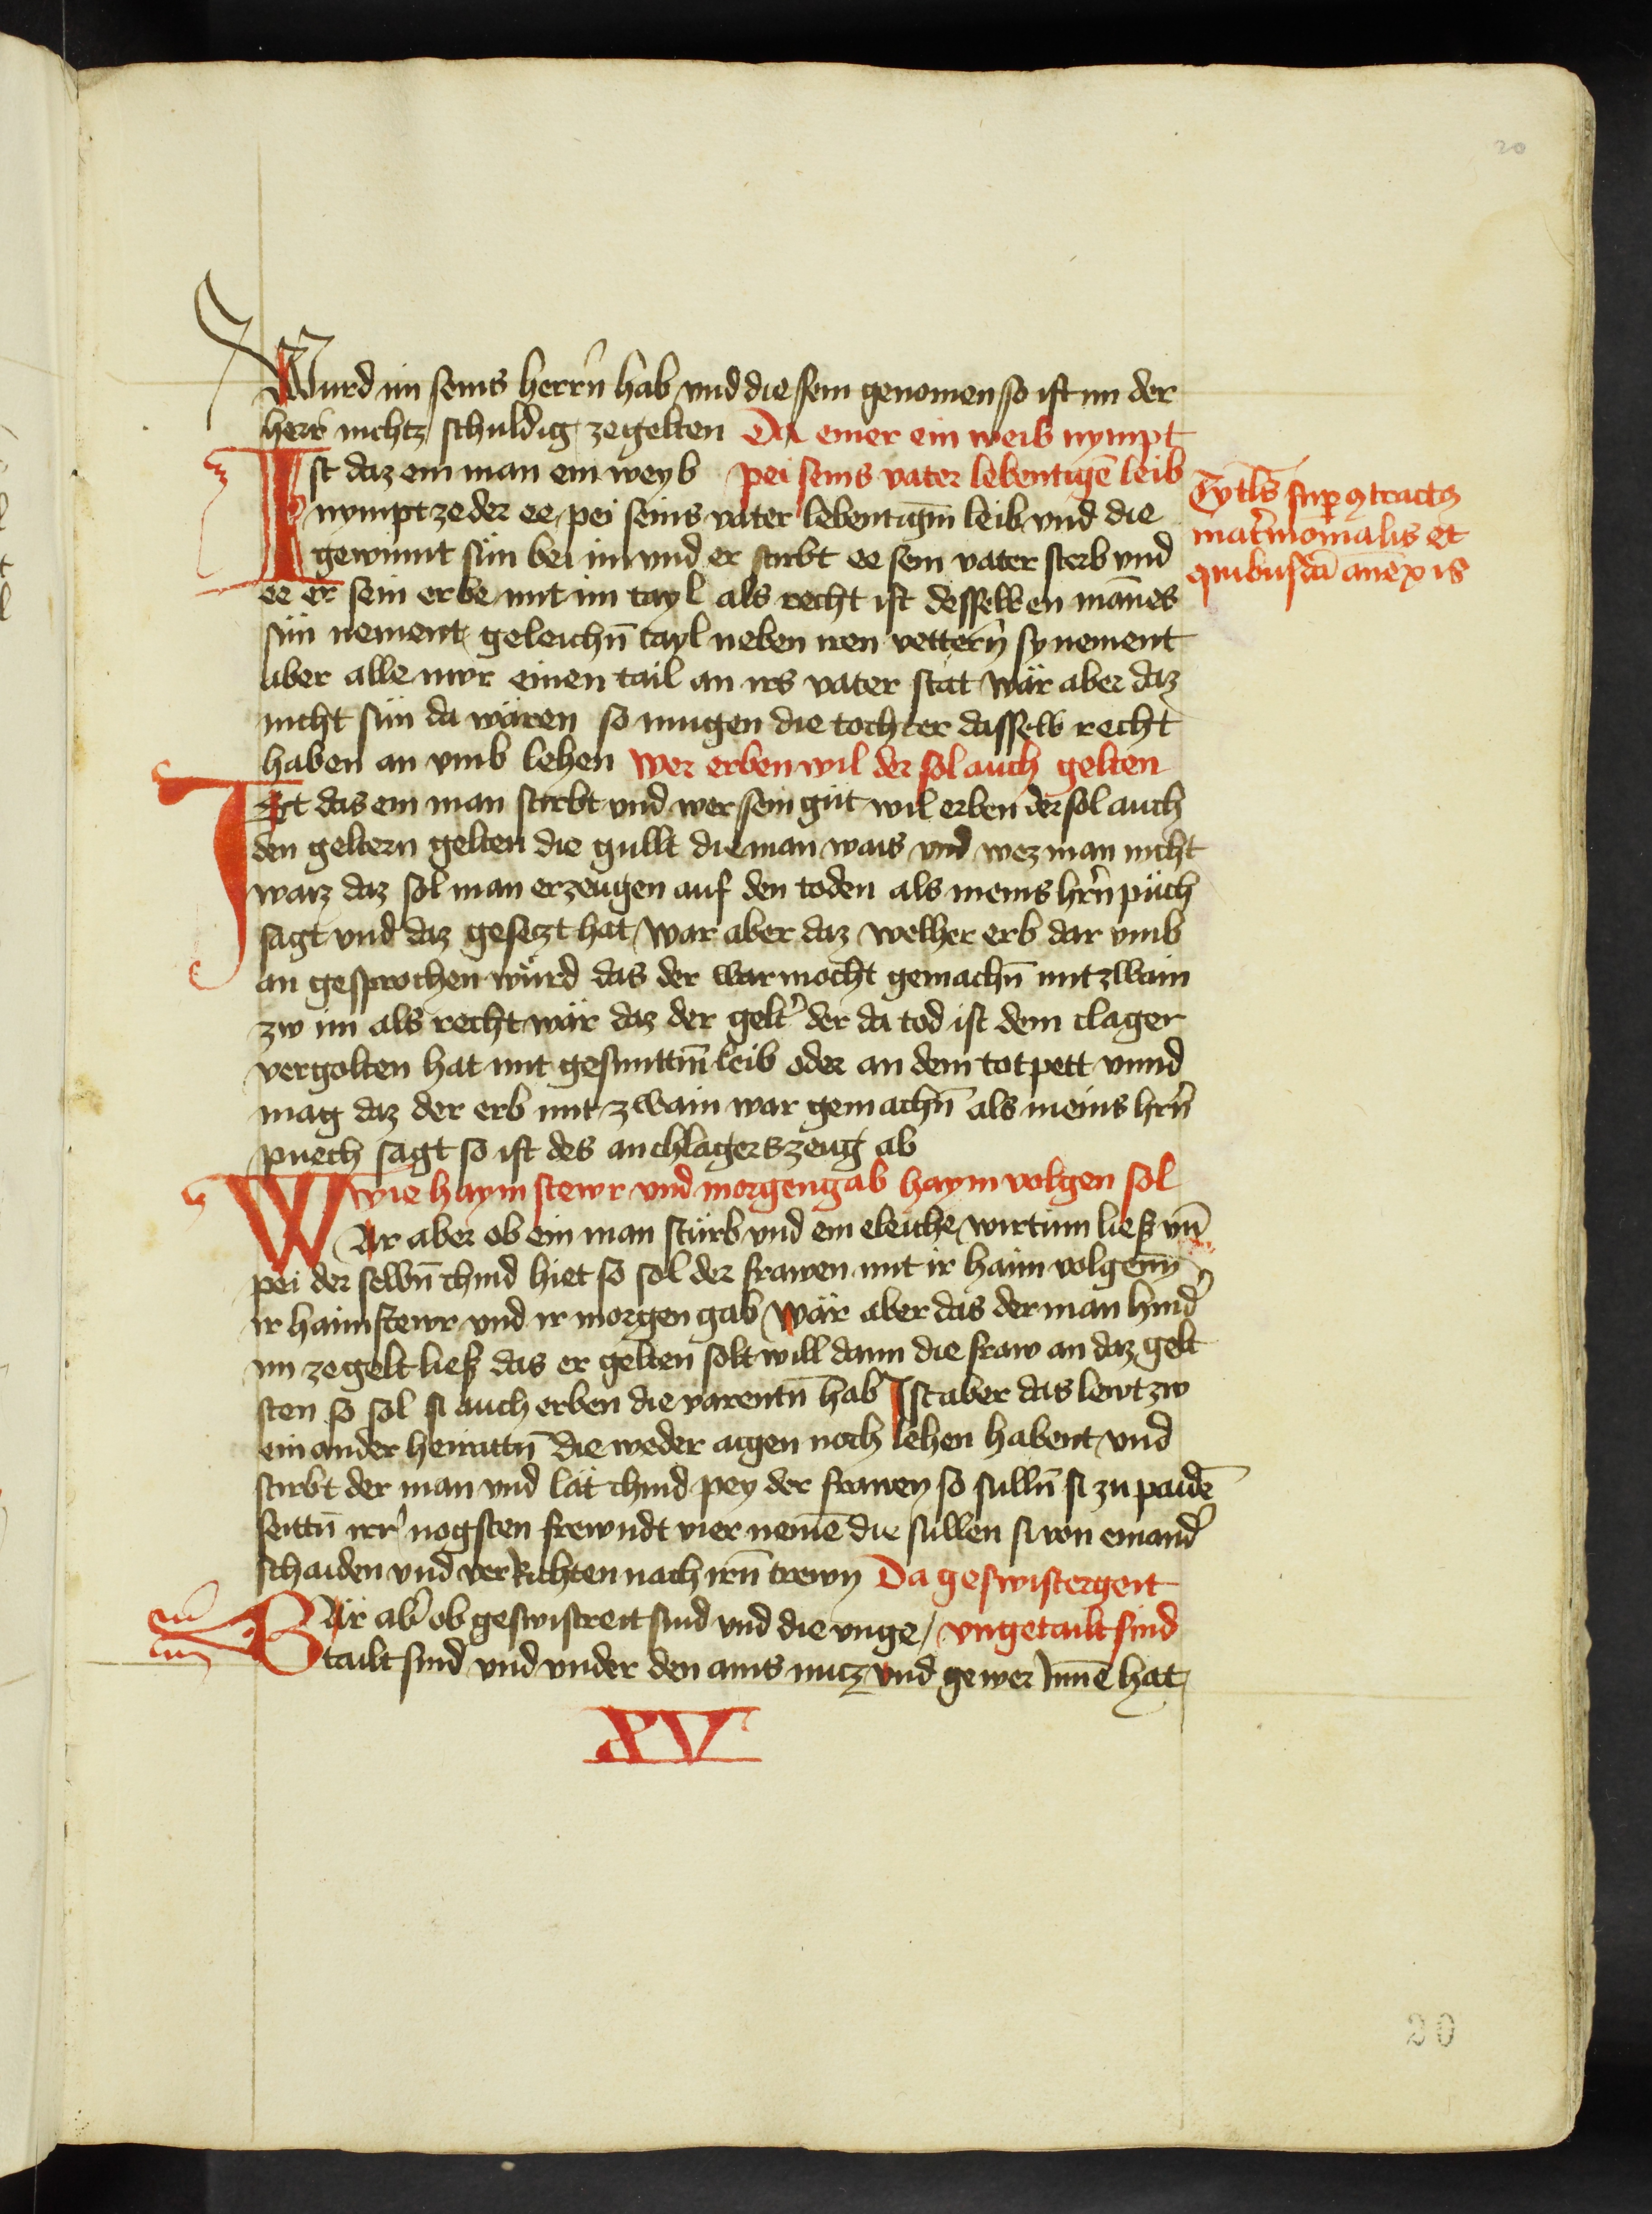 20
Wurd im seins herrn̄ hab vnd die sein genomen so ist im der
herr nichtz schuldig zegelten Da einer ein weib nympt
Ist daz ein man ein weyb pei seins vater lebentigē leib
nympt ze der ee pei seins vater lebentigm̄ leib vnd die
gewinnt sün bei im vnd er stirbt ee sein vater sterb vnd
ee er sein erbe mit im tayl als recht ist desselben mānes
sün nement geleichn̄ tayl neben iren vettern̄ sy nement
aber alle nwr einen tail an irs vater stat wär aber daz
nicht sün da wären so mugen die tochter dasselb recht
haben an vmb lehen wer erben wil der sol auch gelten
Ist das ein man stirbt vnd wer sein güt wil erben der sol auch
den geltern gelten die gullt die man wais vnd wez man nicht
waiz daz sol man erzeugen auf den toden als meins hrn̄ püch
sagt vnd daz gesetzt hat war aber daz welher erb dar vmb
an gesprochen würd das der war mocht gemachn̄ mit zwain
zw im als recht wär daz der gelt' der da tod ist dem clager
vergolten hat mit gesunttm̄ leib oder an dem totpett vnnd
mag daz der erb mit zwain war gemachn̄ als meins hrn̄
puech sagt so ist des anchlagers zeug ab
wie haymstewr vnd morgengab haym volgen sol
WAr aber ob ein man stürb vnd ein eleiche wirtinn liesz vn̄
pei der selbn̄ chind hiet so sol der frawen mit ir haim volgenn̄
ir haimstewr vnd ir morgen gab wär aber das der man hind'
im ze gelt liesz das er gelten solt will dann die fraw an daz gelt
sten so sol si auch erben die varentn̄ hab Ist aber das lewt zw
ein ander heirattn̄ die weder aigen noch lehen habent vnd
stirbt der man vnd lät chind pey der frawen so sulln̄ si zu paidē
seittn̄ irr' nogsten frewndt vier nemē die sullen si von einand'
schaiden vnd verrichten nach irn̄ trewn Da geswistergeit
WÄr ab' ob geswistreit sind vnd die vnge/ vngetailt sind
tailt sind vnd vnder den ains nucz vnd gewer Innē hat
Tytl̄s sup̄ 9tractꝯ
mat'monialis et
quibusdā anēxis
XV
20